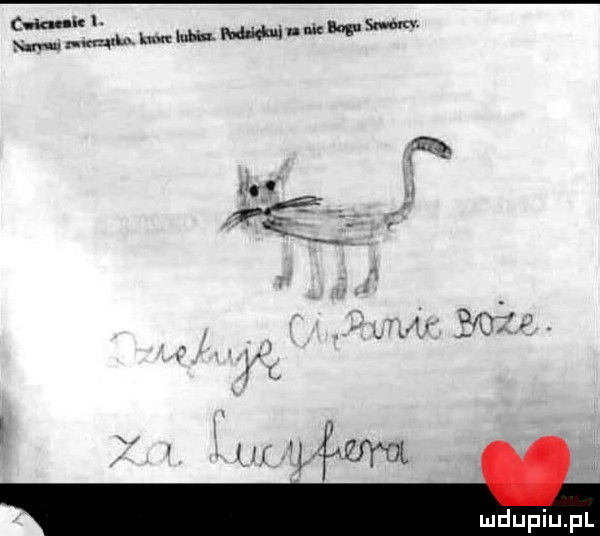 Ćwiczenie 1.
Narysuj zwierzątko, które lubisz. Podziękuj za nie Bogu Stwórcy.
Dziękuję Ci, Panie Boże.
za Lucyfera
mdupiu.pl